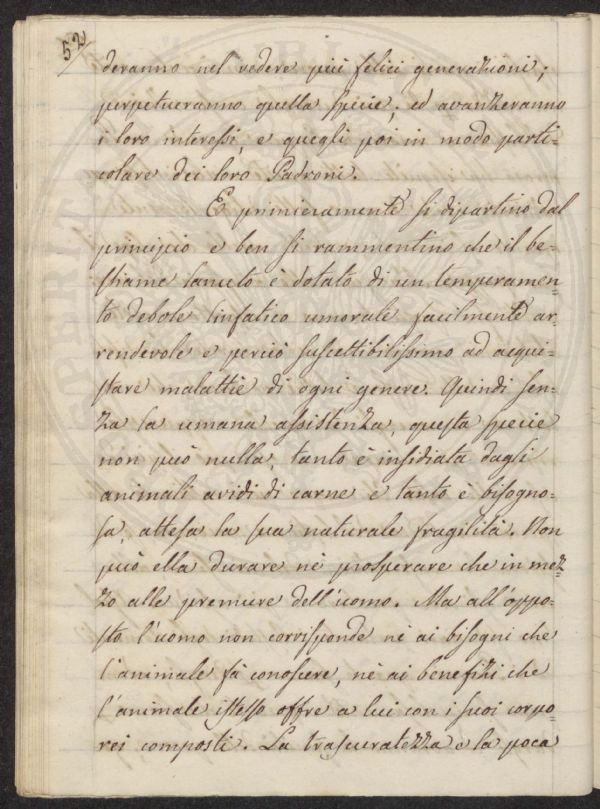 52
deranno nel vedere più felici generazioni;
perpetueranno quella specie; ed avanzeranno
i loro interessi, e quegli poi in modo parti-
colare dei loro Padroni.
E primieramente si dipartino dal
principio e ben si rammentino che il be-
stiame lanuto è dotato di un temperamen=
to debole linfatico umorale facilmente ar=
rendevole e perciò suscettibilissimo ad acqui-
stare malattie di ogni genere. Quindi sen-
za la umana assistenza, questa specie
non può nulla, tanto è insidiata dagli
animali avidi di carne e tanto è bisogno-
sa, attesa la sua naturale fragilità. Non
può ella durare nè prosperare che in mez=
zo alle premure dell'uomo. Ma all'oppo-
sto l'uomo non corrisponde nè ai bisogni che
l'animale fà conoscere, nè ai benefizi che
l'animale istesso offre a lui con i suoi corpo-
rei composti. La trascuratezza e la poca